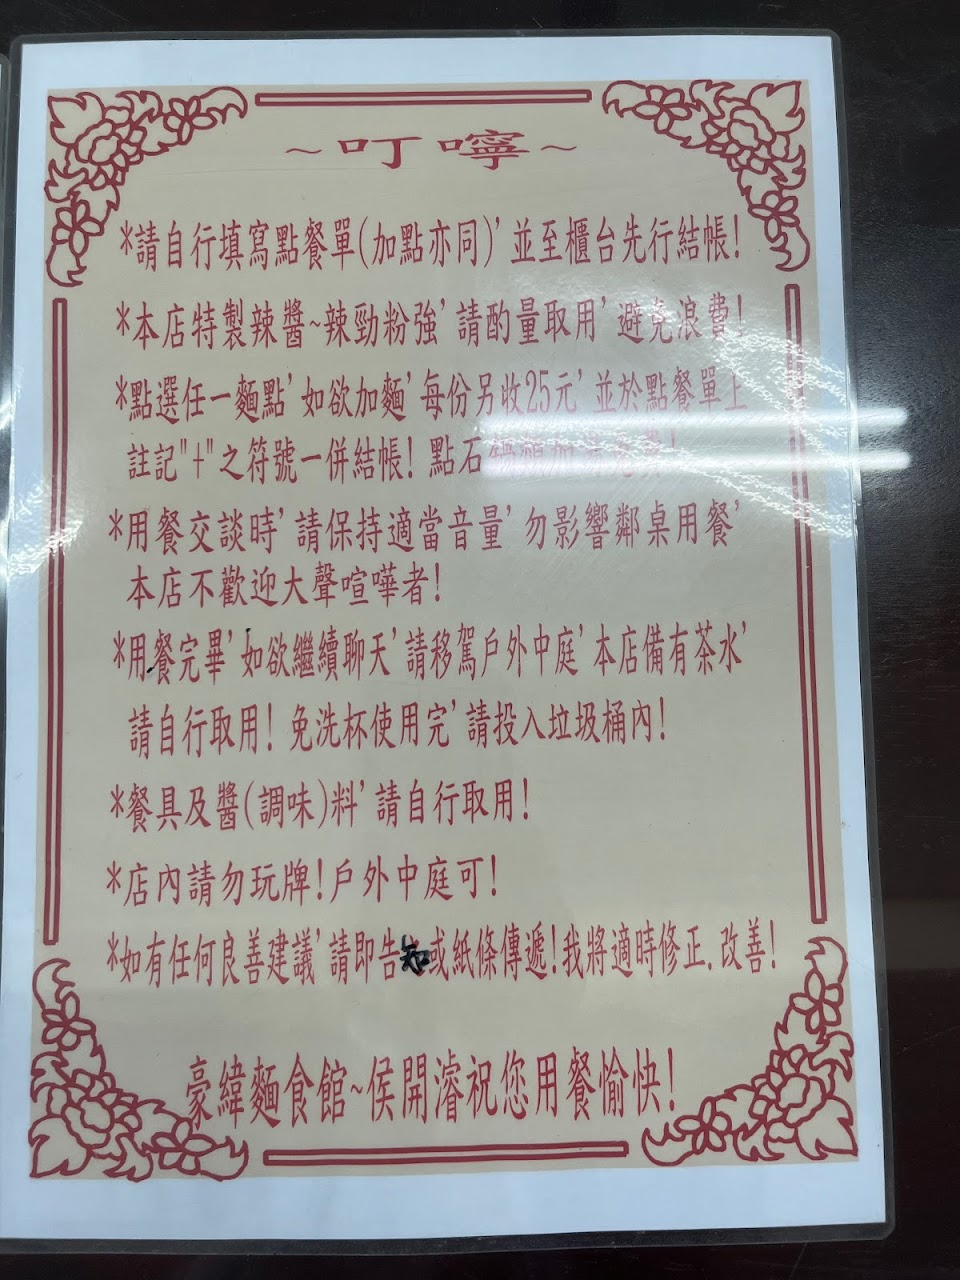 ~叮嚀~
*請自行填寫點餐單(加點亦同)'並至櫃台先行結帳!
*本店特製辣醬~辣勁粉強'請酌量取用'避免浪費!
*點選任一麵點'如欲加麵'每份另收25元'並於點餐單上
註記"+"之符號一併結帳!點石
*用餐交談時'請保持適當音量'勿影響鄰桌用餐'
本店不歡迎大聲喧嘩者!
*用餐完畢'如欲繼續聊天'請移駕戶外中庭'本店備有茶水'
請自行取用!免洗杯使用完'請投入垃圾桶內!
*餐具及醬(調味)料'請自行取用!
*店內請勿玩牌!戶外中庭可!
*如有任何良善建議'請即告知或紙條傳遞!我將適時修正.改善!
豪緯麵食館~侯開濬祝您用餐愉快!